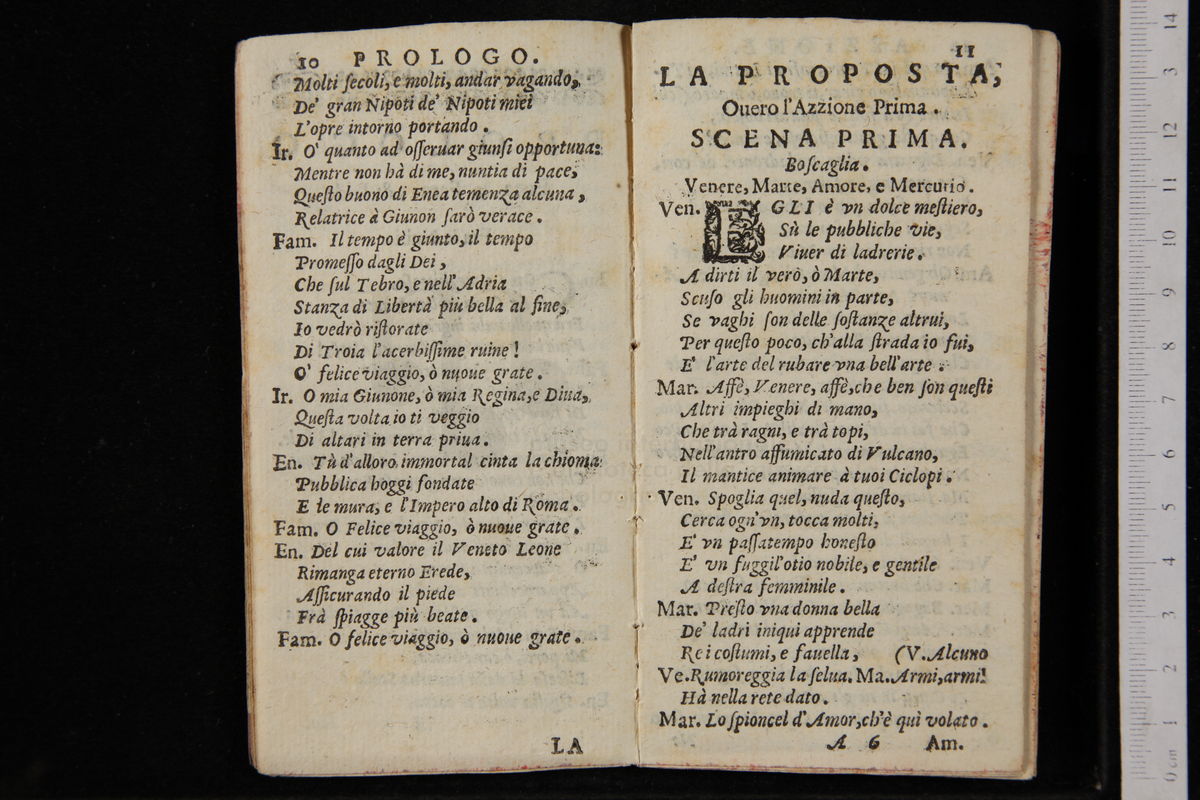 10 PROLOGO.
Molti ſecoli, e molti, andar vagando,
De' gran Nipoti de' Nipoti miei
L'opre intorno portando.
Ir. O' quanto ad oſſeruar giunſi opportuna:
Mentre non hà di me, nuntia di pace,
Queſto buono di Enea temenza alcuna,
Relatrice à Giunon ſarò verace.
Fam. Il tempo è giunto, il tempo
Promeſſo dagli Dei,
Che ſul Tebro, e nell'Adria
Stanza di Libertà più bella al fine,
Io vedrò riſtorate
Di Troia l'acerbiſſime ruine!
O' felice viaggio, ò nuoue grate.
Ir. O mia Giunone, ò mia Regina, e Diua,
Queſta volta io ti veggio
Di altari in terra priua.
En. Tù d'alloro immortal cinta la chioma
Pubblica hoggi fondate
E le mura, e l'Impero alto di Roma.
Fam. O Felice viaggio, ò nuoue grate.
En. Del cui valore il Veneto Leone
Rimanga eterno Erede,
Aſſicurando il piede
Frà ſpiagge più beate.
Fam. O felice viaggio, ò nuoue grate.
LA
11
LA PROPOSTA,
Ouero l'Azzione Prima.
SCENA PRIMA.
Boſcaglia.
Venere, Marte, Amore, e Mercurio.
Ven. EGLI è vn dolce meſtiero,
Sù le pubbliche vie,
Viuer di ladrerie.
A dirti il verò, ò Marte,
Scuſo gli huomini in parte,
Se vaghi ſon delle ſoſtanze altrui,
Per queſto poco, ch'alla ſtrada io fui,
E' l'arte del rubare vna bell'arte.
Mar. Affè, Venere, affè, che ben ſon queſti
Altri impieghi di mano,
Che trà ragni, e trà topi,
Nell'antro affumicato di Vulcano,
Il mantice animare à tuoi Ciclopi.
Ven. Spoglia quel, nuda queſto,
Cerca ogn'vn, tocca molti,
E' vn paſſatempo honeſto
E' vn fuggil'otio nobile, e gentile
A deſtra femminile.
Mar. Preſto vna donna bella
De' ladri iniqui apprende
Rei coſtumi, e fauella, (V. Alcuno
Ve. Rumoreggia la ſelua. Ma. Armi, armi!
Hà nella rete dato.
Mar. Lo ſpioncel d'Amor, ch'è quì volato.
A 6 Am.